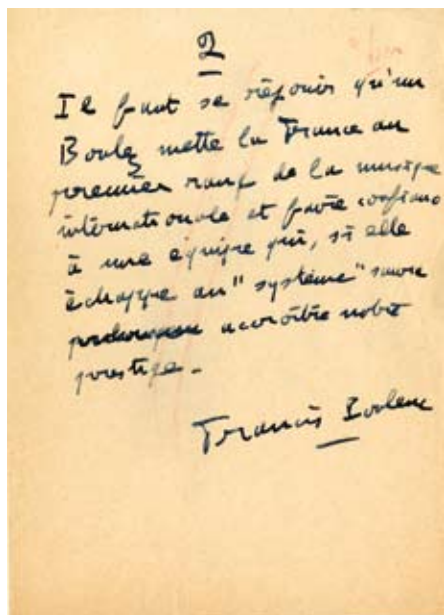 2
Il faut se réjouir qu'un
Boulez mette la France au
premier rang de la musique
internationale et faire confiance
à une équipe qui, si elle
échappe au "système" saura
accroître notre
prestige.
Francis Poulenc